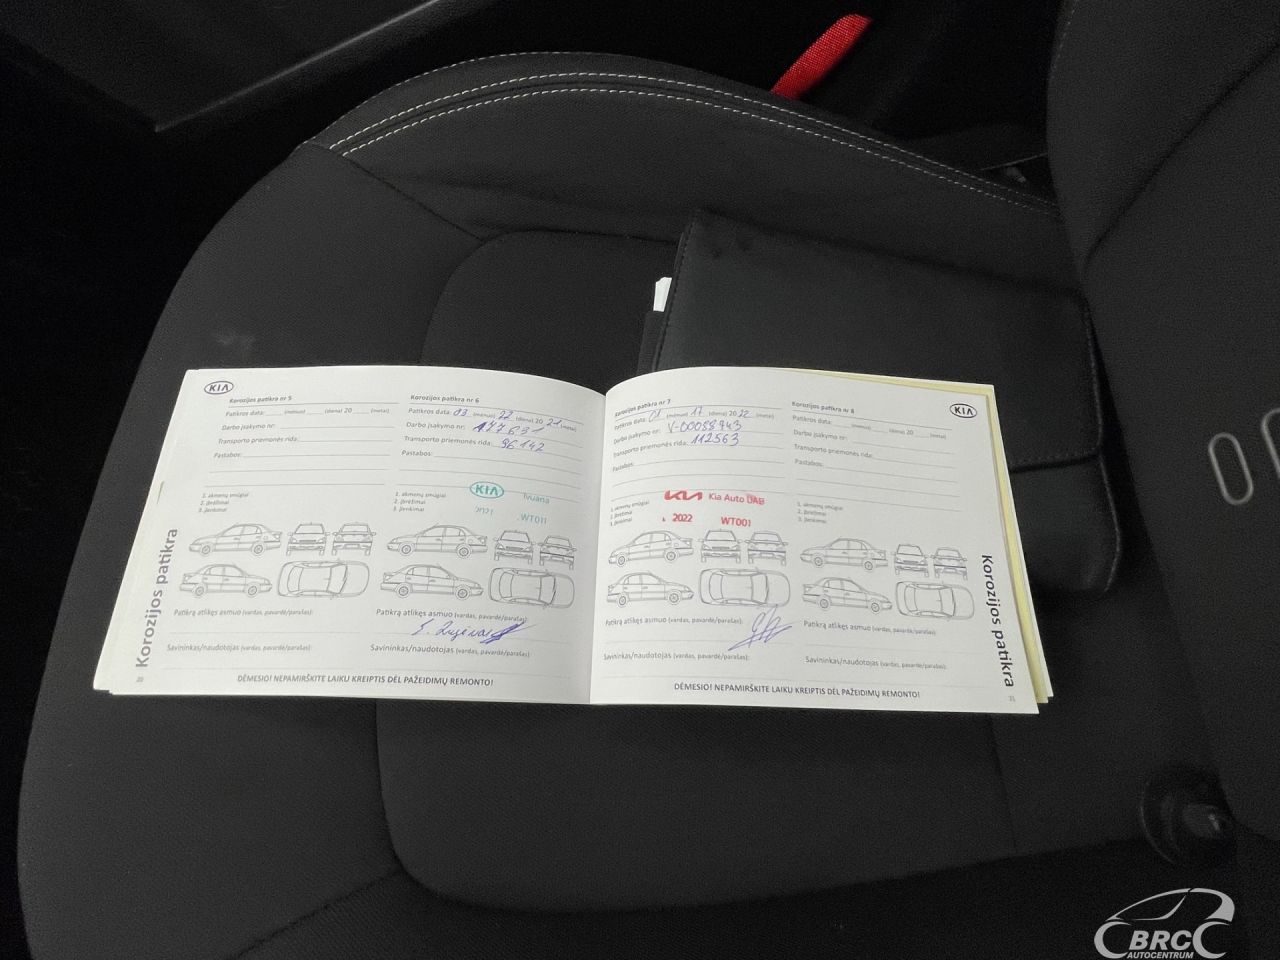 KIA
Korozijos patikra nr 5
Patikros data: ____ (mėnuo) ____ (diena) 20 ____ (metai)
Darbo įsakymo nr:
Transporto priemonės rida:
Pastabos:
1. akmenų smūgiai
2. įbrėžimai
3. įlenkimai
Patikrą atlikęs asmuo (vardas, pavardė/parašas):
Savininkas/naudotojas (vardas, pavardė/parašas):
Korozijos patikra nr 6
Patikros data: 03 (mėnuo) 22 (diena) 20 21 (metai)
Darbo įsakymo nr: 177631
Transporto priemonės rida: 96142
Pastabos:
1. akmenų smūgiai
2. įbrėžimai
3. įlenkimai
KIA
2021 WT011
Patikrą atlikęs asmuo (vardas, pavardė/parašas):
Savininkas/naudotojas (vardas, pavardė/parašas):
Korozijos patikra
30
DĖMESIO! NEPAMIRŠKITE LAIKU KREIPTIS DĖL PAŽEIDIMŲ REMONTO!
Korozijos patikra nr 7
Patikros data: 01 (mėnuo) 17 (diena) 20 22 (metai)
Darbo įsakymo nr: V-00088943
Transporto priemonės rida: 112563
Pastabos:
1. akmenų smūgiai
2. įbrėžimai
3. įlenkimai
KIA Kia Auto UAB
2022 WT001
Patikrą atlikęs asmuo (vardas, pavardė/parašas):
Savininkas/naudotojas (vardas, pavardė/parašas):
Korozijos patikra nr 8
KIA
Patikros data: ____ (mėnuo) ____ (diena) 20 ____ (metai)
Darbo įsakymo nr:
Transporto priemonės rida:
Pastabos:
1. akmenų smūgiai
2. įbrėžimai
3. įlenkimai
Patikrą atlikęs asmuo (vardas, pavardė/parašas):
Savininkas/naudotojas (vardas, pavardė/parašas):
Korozijos patikra
31
DĖMESIO! NEPAMIRŠKITE LAIKU KREIPTIS DĖL PAŽEIDIMŲ REMONTO!
BRC
AUTOCENTRUM